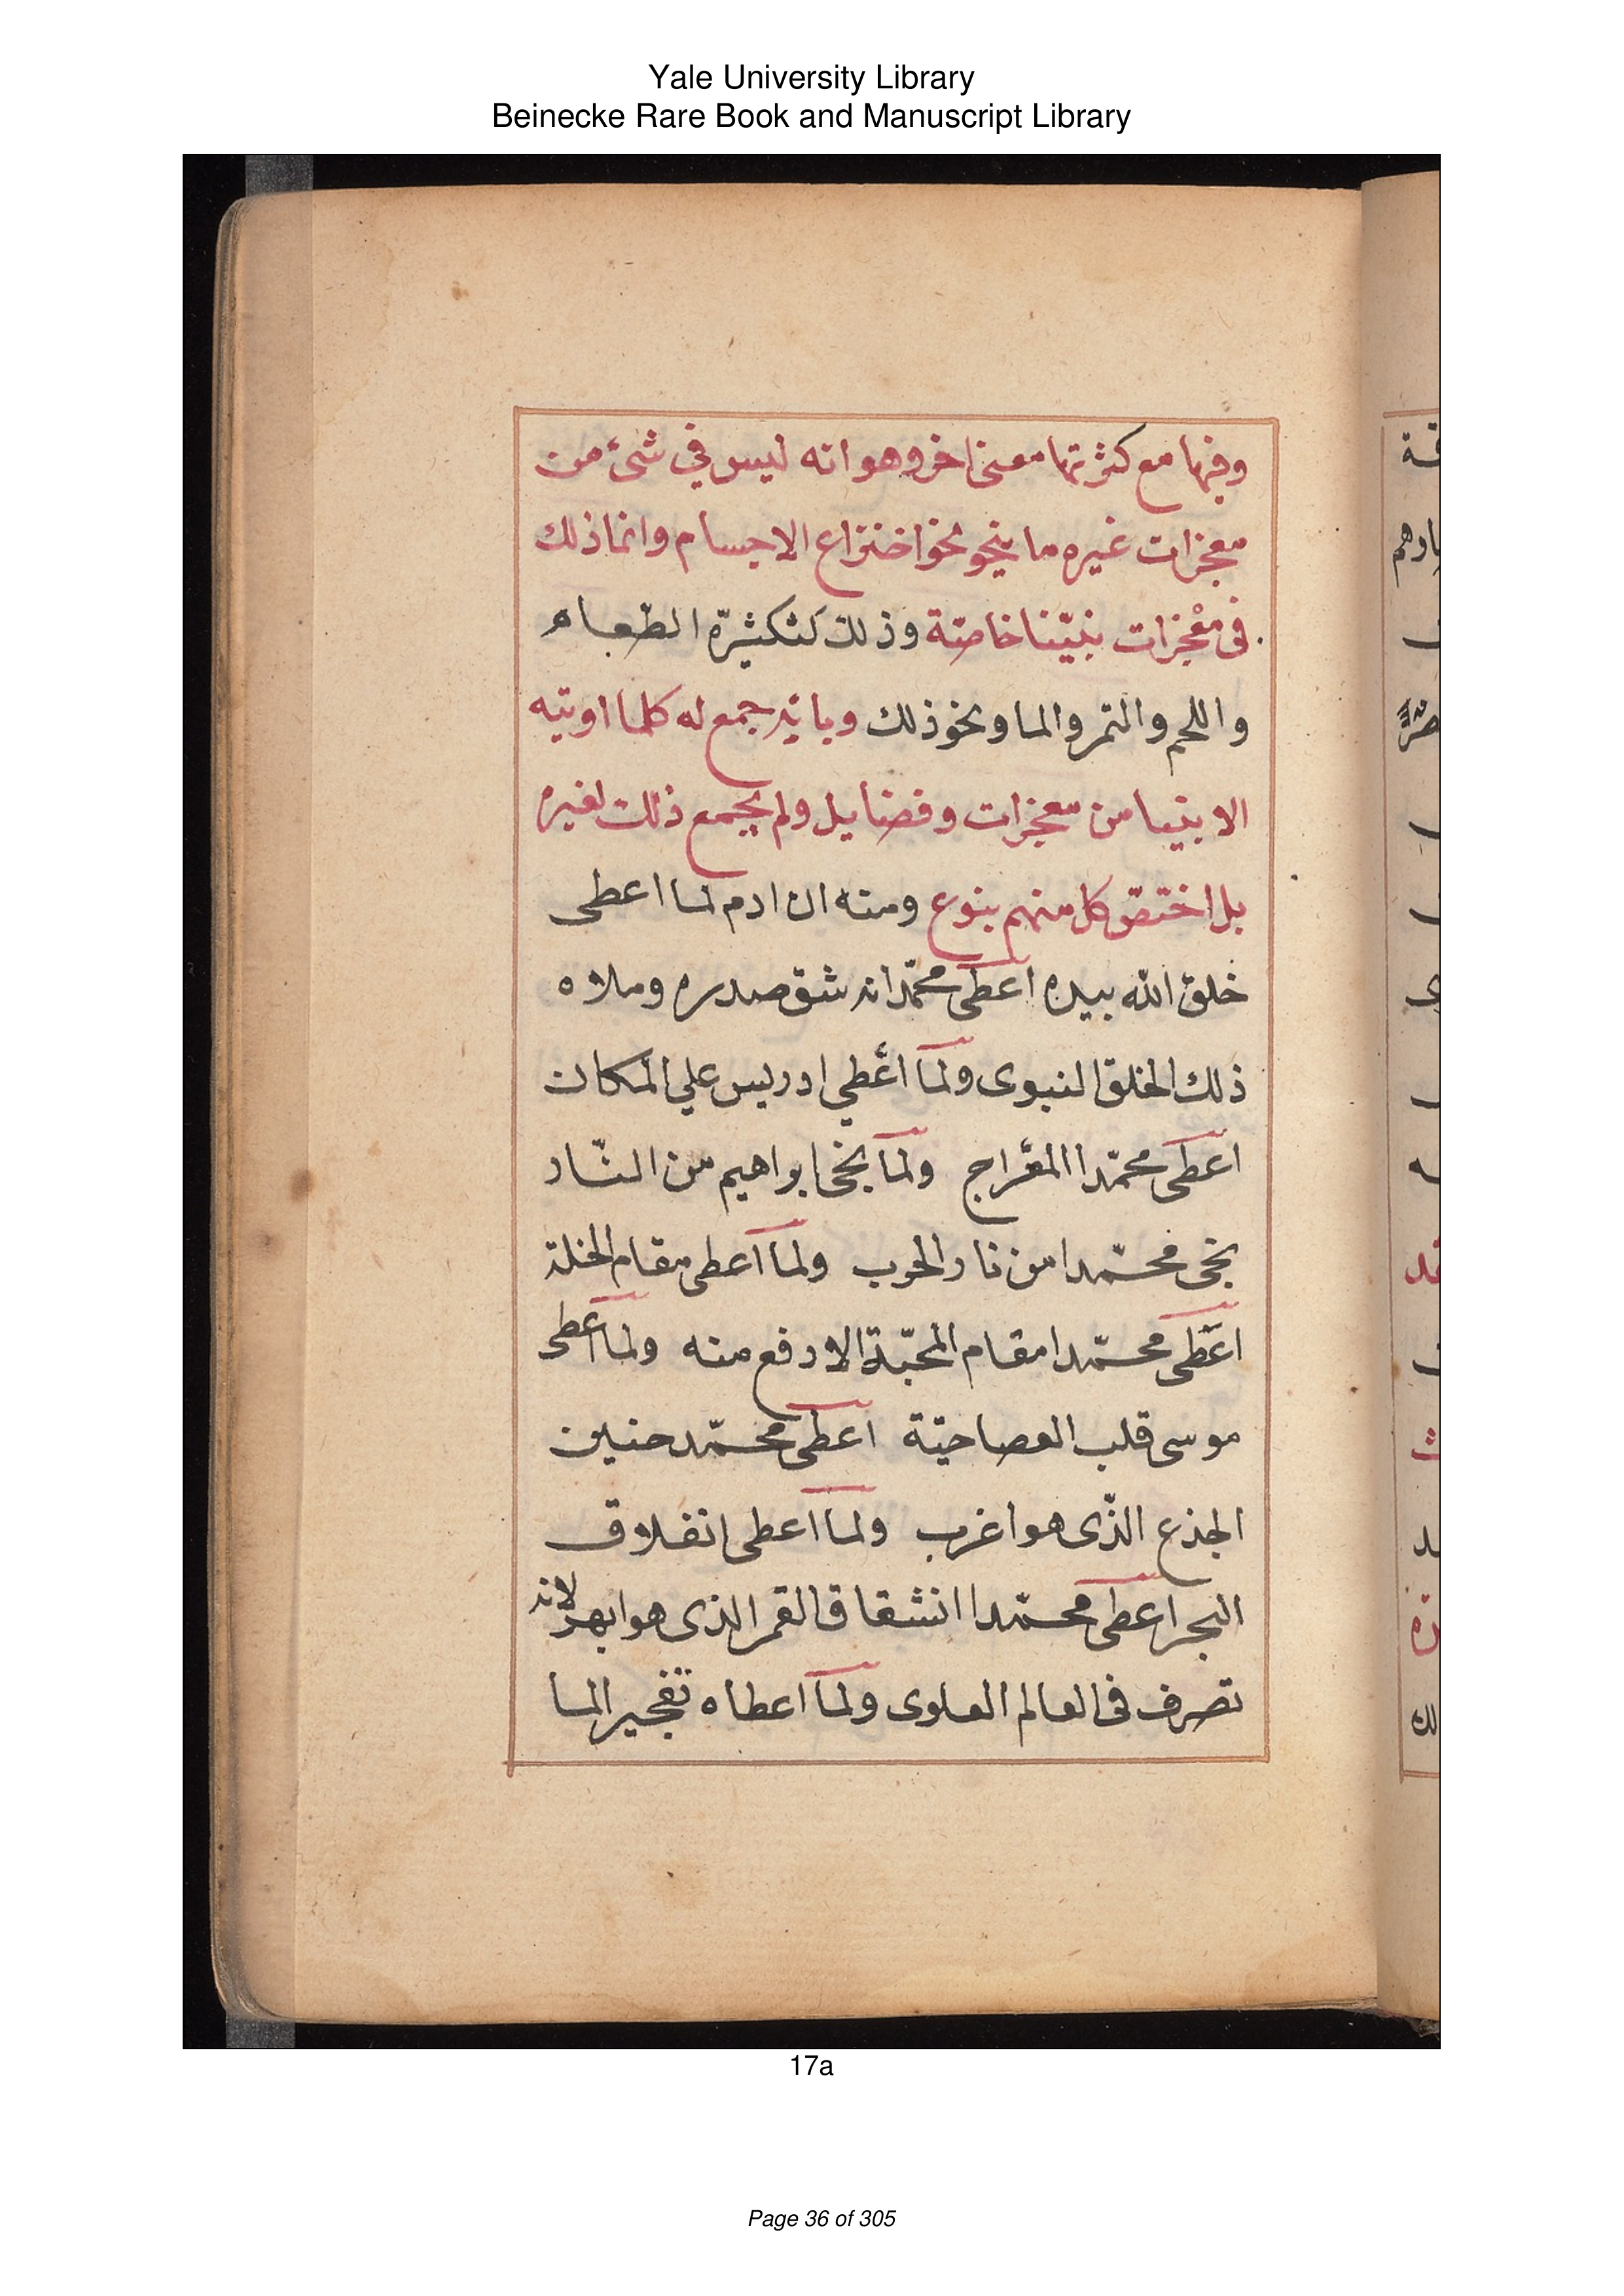 Yale University Library
Beinecke Rare Book and Manuscript Library
وفيها مع كثرتها معنى اخر وهو انه ليس في شئ من
معجزات غيره ما ينحو نحو اختراع الاجسام وانما ذلك
فى معْجزات نبيّنا خاصّة وذلك كتكثيرة الطّعام
واللحم والتمر والما ونحو ذلك وبانه جمع له كلما اوتيه
الانبيا من معجزات وفضايل ولم يجمع ذلك لغيره
بل اختصّ كل منهم بنوع ومنه ان ادم لما اعطى
خلق الله بيده اعطى محمّدا انه شق صدره وملاه
ذلك الخلق النبوى ولما اعْطي ادريس علي المكان
اعطى محمّدا المعْراج ولما نجى ابراهيم من النّار
نجى محمّدا من نار الحرب ولما اعطى مقام الخلة
اعْطى محمّدا مقام المحبّة الارفع منه ولما اعطى
موسى قلب العصا حيّة اعطى محمّد حنين
الجذع الذّى هو اغرب ولما اعطى انفلاق
البحر اعطى محمّدا انشقاق القمر الذى هو ابهر لانه
تصرف فى العالم العلوى ولما اعطاه تفجير الما
17a
Page 36 of 305